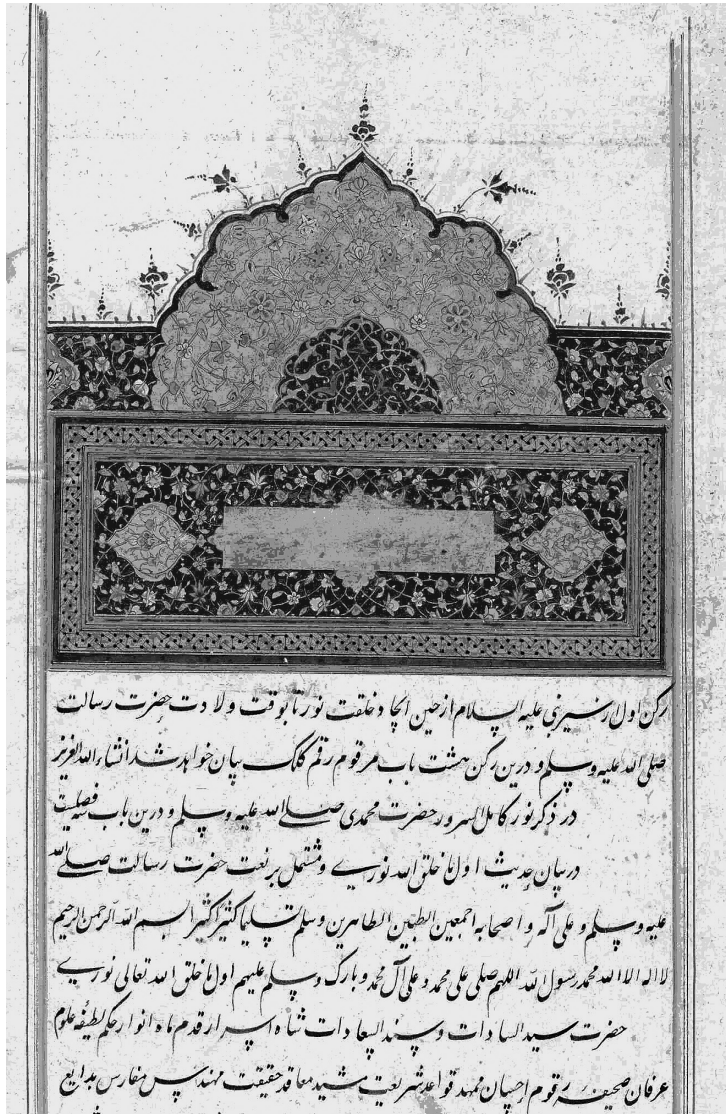 رکن اول در سیر نبی علیه السلام از حین ایجاد خلقت نور تا بوقت ولادت حضرت رسالت
صلی الله علیه وسلم و درین رکن هشت باب مرقوم رقم کلک بیان خواهد شد انشاءالله العزیز
در ذکر نور کامل السرور حضرت محمدی صلی الله علیه وسلم و درین باب فصلیست
در بیان حدیث اول ما خلق الله نوری و مشتمل بر نعت حضرت رسالت صلی الله
علیه وسلم و علی آله و اصحابه اجمعین الطیبین الطاهرین وسلم تسلیما کثیرا کثیرا بسم الله الرحمن الرحیم
لا اله الا الله محمد رسول الله اللهم صلی علی محمد و علی آل محمد و بارک وسلم علیهم اول ما خلق الله تعالی نوری
حضرت سید السادات و سند السعادات شاه اسرار قدم ماه انوار حکم لطیفه علوم
عرفان صحیفه رقوم احسان ممهد قواعد شریعت مشید معاقد حقیقت مهندس مغارس بدایع